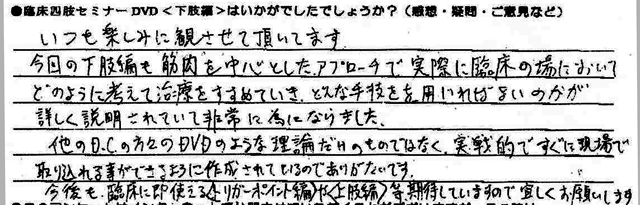 ●臨床四肢セミナーDVD<下肢編>はいかがでしたでしょうか?(感想・疑問・ご意見など)
いつも楽しみに観させて頂いてます。
今回の下肢編も筋肉を中心としたアプローチで実際に臨床の場において
どのように考えて治療をすすめていき、どんな手技を用いればよいのかが
詳しく説明されていて非常に為になりました。
他のD.C.の方々のDVDのような理論だけのものではなく、実戦的ですぐに現場で
取り込れる事ができるように作成されているのでありがたいです。
今後も、臨床に即使える<トリガーポイント編>や<上肢編>等期待していますので宜しくお願いします